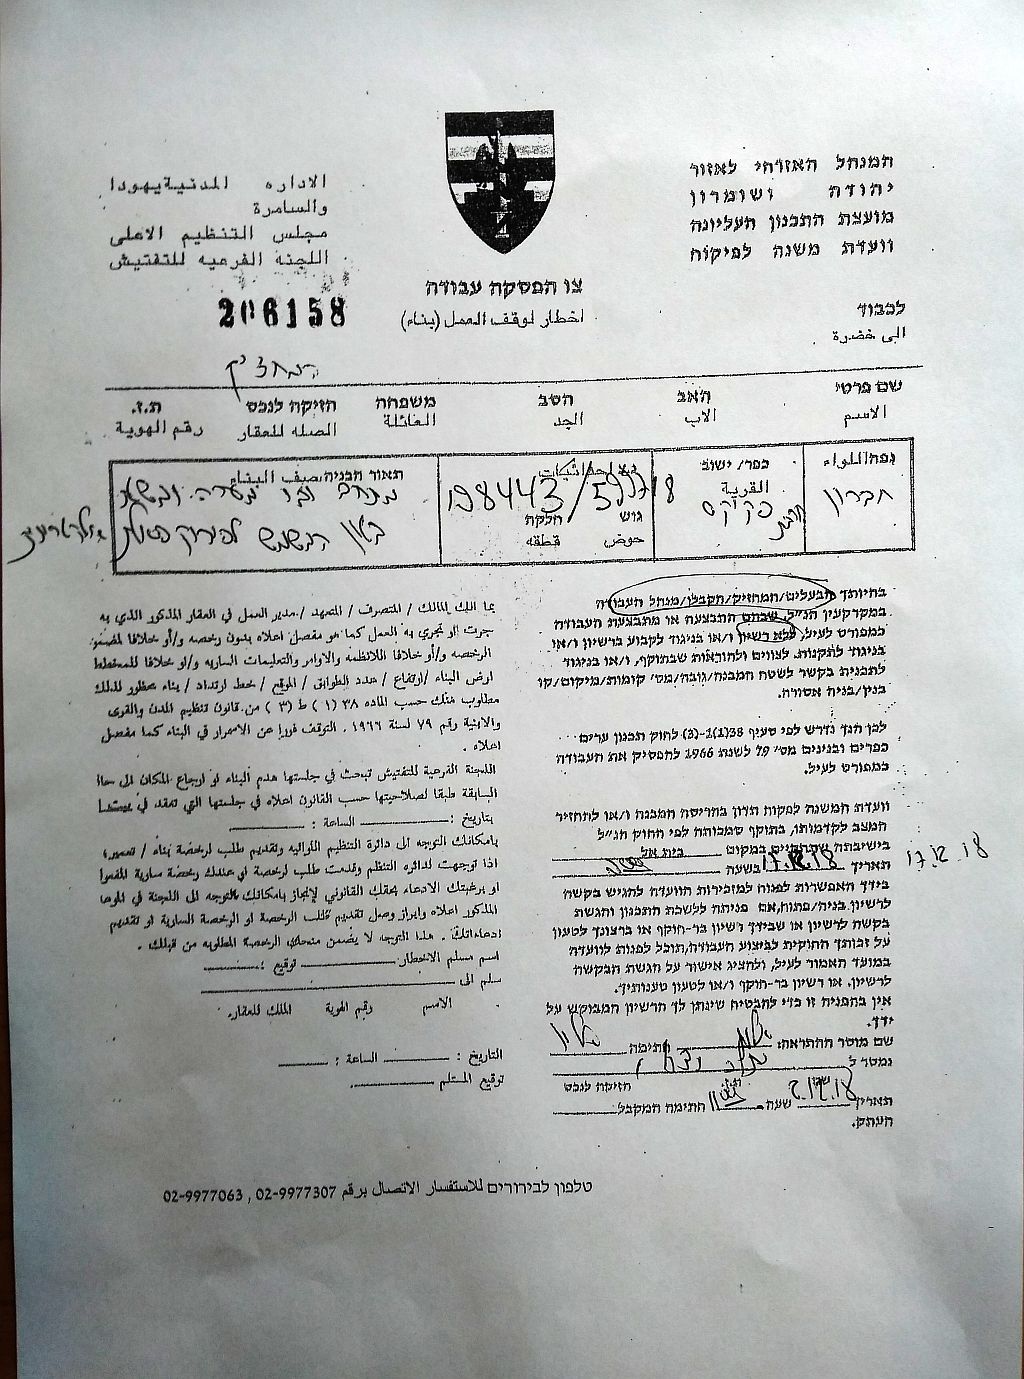 המנהל האזרחי לאזור
יהודה ושומרון
מועצת התכנון העליונה
וועדת משנה לפיקוח
الاداره المدنية يهودا
والسامرة
مجلس التنظيم الاعلى
اللجنة الفرعيه للتفتيش
צו הפסקת עבודה
اخطار لوقف العمل (بناء)
206158
לכבוד
الى حضرة
המחזיק
שם פרטי האב הסב משפחה הזיקה לנכס ת.ז.
الاسم الاب الجد العائلة الصله للعقار رقم الهوية
נפה اللواء
חברון
כפר/ ישוב
القرية
198443/599718
גוש חלקה
حوض قطعه
תאור הבניה وصف البناء
בהיותך הבעלים/המחזיק/הקבלן/מנהל העבודה
במקרקעין הנ"ל, שבהם התבצעה או מתבצעת העבודה
כמפורט לעיל, ללא רשיון ו/או בניגוד לקבוע ברשיון ו/או
בניגוד לתקנות, לצווים ולהוראות שבתוקף, ו/או בניגוד
לתכנית בקשר לשטח המבנה/גובה/מס' קומות/מיקום/קו
בנין/בניה אסורה.
לכן הנך נדרש לפי סעיף 38(1)-(3) לחוק תכנון ערים
כפרים ובנינים מס' 79 לשנת 1966 להפסיק את העבודה
כמפורט לעיל.
וועדת המשנה לפקוח תדון בהריסת המבנה ו/או להחזיר
המצב לקדמותו, בתוקף סמכותה לפי החוק הנ"ל
בישיבתה שתתקיים במקום בית אל
תאריך 17.12.18 בשעה 17.12.18
בידך האפשרות לפנות למזכירות הוועדה להגיש בקשה
לרשיון בניה/פתוח, אם פניתה ללשכת התכנון והגשת
בקשה לרשיון או שבידך רשיון בר-תוקף או ברצונך לטעון
על זכותך החוקית לביצוע העבודה, תוכל לפנות לוועדה
במועד האמור לעיל, ולהציג אישור על הגשת הבקשה
לרשיון, או רשיון בר-תוקף ו/או לטעון טענותיך.
אין בהפניה זו כדי להבטיח שינתן לך הרשיון המבוקש על
ידך.
שם מוסר ההתראה: חתימה
נמסר ל
שם ת.ז. הזיקה לנכס
תאריך 2.12.18 שעה חתימה המקבל
העתק.
بما انك المالك / المتصرف / المتعهد / مدير العمل في العقار المذكور الذي به
جرت او تجري به العمل كما هو مفصل اعلاه بدون رخصه و/أو خلافا لمضمون
الرخصه و/أو خلافا للانظمه والاوامر والتعليمات الساريه و/او خلافا للمخطط
ارض البناء / ارتفاع / عدد الطوابق / الموقع / خط ارتداد / بناء محظور لذلك
مطلوب منك حسب الماده ٣٨ (١) ط (٣) من قانون تنظيم المدن والقرى
والابنية رقم ٧٩ لسنة ١٩٦٦ . التوقف فورا عن الاسمرار في البناء كما مفصل
اعلاه .
اللجنة الفرعية للتفتيش تبحث في جلستها هدم البناء او ارجاع المكان الى حالة
السابقة طبقا لصلاحيتها حسب القانون اعلاه في جلستها التي تعقد في
بتاريخ : الساعة :
بامكانك التوجه الى دائرة التنظيم اللوائيه وتقديم طلب لرخصة بناء / تعمير،
اذا توجهت لدائره التنظم وقدمت طلب لرخصة او عندك رخصة سارية المفعول
او برغبتك الادعاء بحقك القانوني لإنجاز بامكانك بالتوجه الى اللجنة في الموعد
المذكور اعلاه وابراز وصل تقديم طلب الرخصة او الرخصة السارية او تقديم
ادعاءاتك . هذا التوجه لا يضمن منحك الرخصة المطلوبه من قبلك .
اسم مسلم الاخطار: توقيع :
سلم الى
الاسم رقم الهوية المالك للعقار.
التاريخ : الساعة :
توقيع المستلم
טלפון לבירורים للاستفسار الاتصال برقم 02-9977307 , 02-9977063